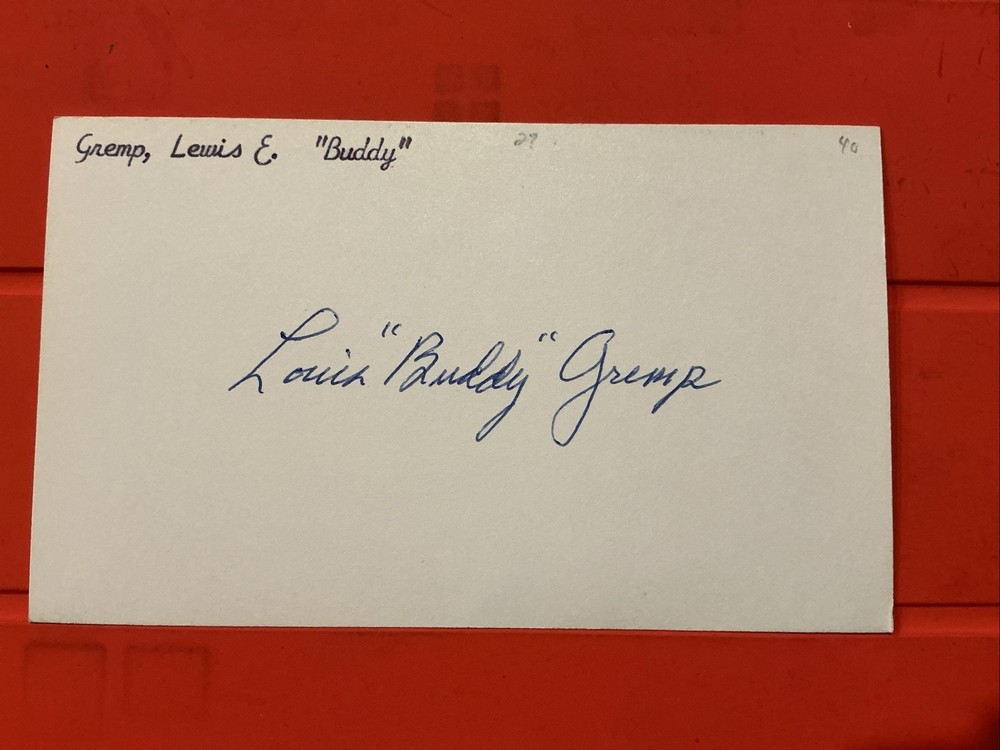 Gremp, Lewis E. "Buddy" 29 40
Louis "Buddy" Gremp